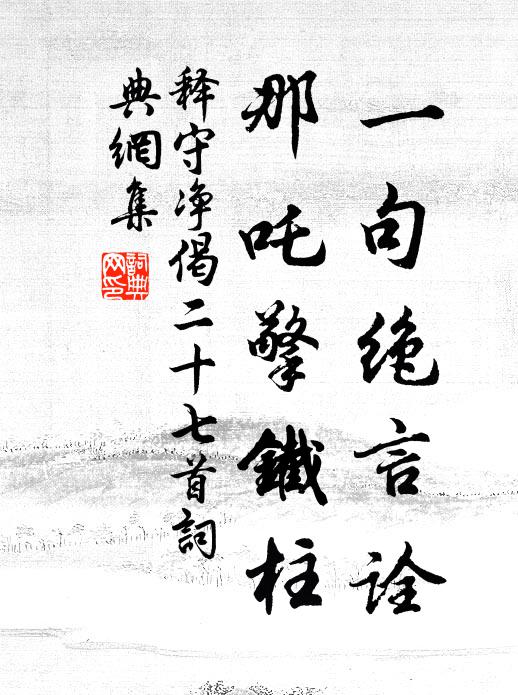 一句绝言诠
那吒擎鐵柱
释守净偈二十七首詞
典網集
詞典
网印